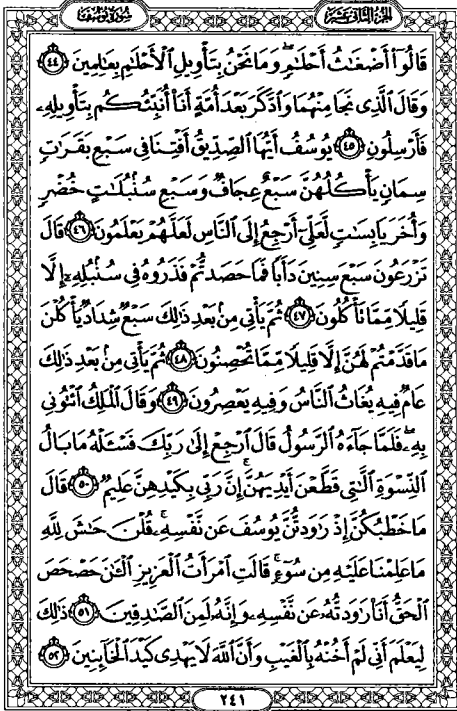 الجزء الثاني عشر
سورة يوسف
قَالُوٓا۟ أَضْغَٰثُ أَحْلَٰمٍ ۖ وَمَا نَحْنُ بِتَأْوِيلِ ٱلْأَحْلَٰمِ بِعَٰلِمِينَ ﴿٤٤﴾
وَقَالَ ٱلَّذِى نَجَا مِنْهُمَا وَٱدَّكَرَ بَعْدَ أُمَّةٍ أَنَا۠ أُنَبِّئُكُم بِتَأْوِيلِهِۦ
فَأَرْسِلُونِ ﴿٤٥﴾ يُوسُفُ أَيُّهَا ٱلصِّدِّيقُ أَفْتِنَا فِى سَبْعِ بَقَرَٰتٍ
سِمَانٍ يَأْكُلُهُنَّ سَبْعٌ عِجَافٌ وَسَبْعِ سُنۢبُلَٰتٍ خُضْرٍ
وَأُخَرَ يَابِسَٰتٍ لَّعَلِّىٓ أَرْجِعُ إِلَى ٱلنَّاسِ لَعَلَّهُمْ يَعْلَمُونَ ﴿٤٦﴾ قَالَ
تَزْرَعُونَ سَبْعَ سِنِينَ دَأَبًا فَمَا حَصَدتُّمْ فَذَرُوهُ فِى سُنۢبُلِهِۦٓ إِلَّا
قَلِيلًا مِّمَّا تَأْكُلُونَ ﴿٤٧﴾ ثُمَّ يَأْتِى مِنۢ بَعْدِ ذَٰلِكَ سَبْعٌ شِدَادٌ يَأْكُلْنَ
مَا قَدَّمْتُمْ لَهُنَّ إِلَّا قَلِيلًا مِّمَّا تُحْصِنُونَ ﴿٤٨﴾ ثُمَّ يَأْتِى مِنۢ بَعْدِ ذَٰلِكَ
عَامٌ فِيهِ يُغَاثُ ٱلنَّاسُ وَفِيهِ يَعْصِرُونَ ﴿٤٩﴾ وَقَالَ ٱلْمَلِكُ ٱئْتُونِى
بِهِۦ ۖ فَلَمَّا جَآءَهُ ٱلرَّسُولُ قَالَ ٱرْجِعْ إِلَىٰ رَبِّكَ فَسْـَٔلْهُ مَا بَالُ
ٱلنِّسْوَةِ ٱلَّٰتِى قَطَّعْنَ أَيْدِيَهُنَّ ۚ إِنَّ رَبِّى بِكَيْدِهِنَّ عَلِيمٌ ﴿٥٠﴾ قَالَ
مَا خَطْبُكُنَّ إِذْ رَٰوَدتُّنَّ يُوسُفَ عَن نَّفْسِهِۦ ۚ قُلْنَ حَٰشَ لِلَّهِ
مَا عَلِمْنَا عَلَيْهِ مِن سُوٓءٍ ۚ قَالَتِ ٱمْرَأَتُ ٱلْعَزِيزِ ٱلْـَٰٔنَ حَصْحَصَ
ٱلْحَقُّ أَنَا۠ رَٰوَدتُّهُۥ عَن نَّفْسِهِۦ وَإِنَّهُۥ لَمِنَ ٱلصَّٰدِقِينَ ﴿٥١﴾ ذَٰلِكَ
لِيَعْلَمَ أَنِّى لَمْ أَخُنْهُ بِٱلْغَيْبِ وَأَنَّ ٱللَّهَ لَا يَهْدِى كَيْدَ ٱلْخَآئِنِينَ ﴿٥٢﴾
٢٤١